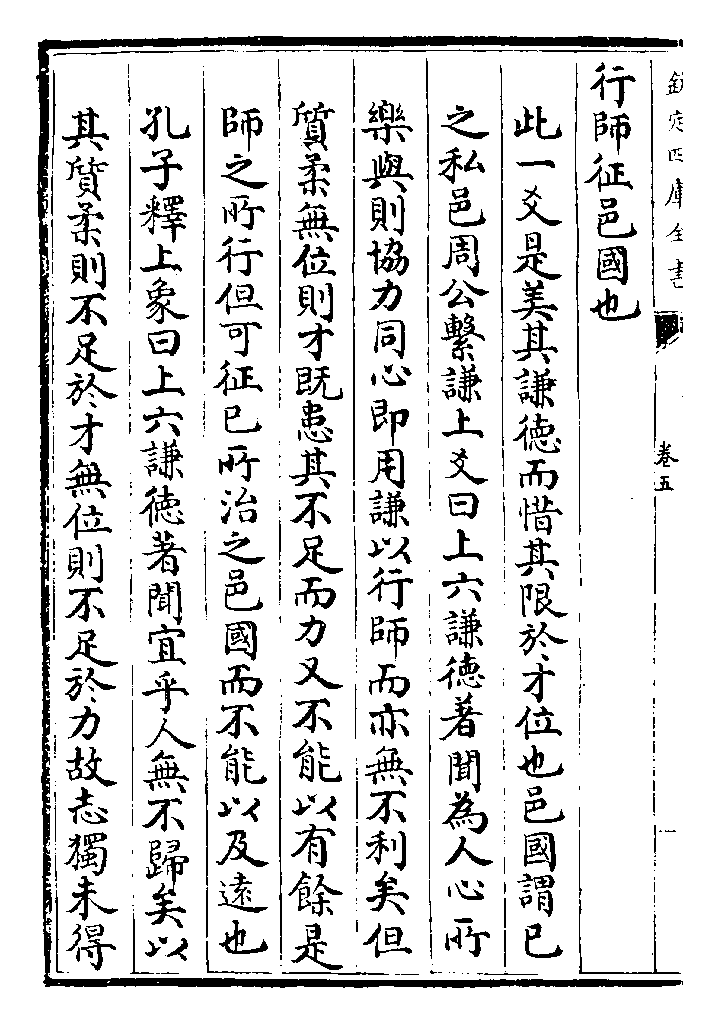 欽定四庫全書
卷五
行師征邑國也
此一爻是美其謙徳而惜其限於才位也邑國謂已
之私邑周公繫謙上爻曰上六謙徳著聞為人心所
樂與則協力同心即用謙以行師而亦無不利矣但
質柔無位則才既患其不足而力又不能以有餘是
師之所行但可征已所治之邑國而不能以及逺也
孔子釋上象曰上六謙徳著聞宜乎人無不歸矣以
其質柔則不足於才無位則不足於力故志獨未得